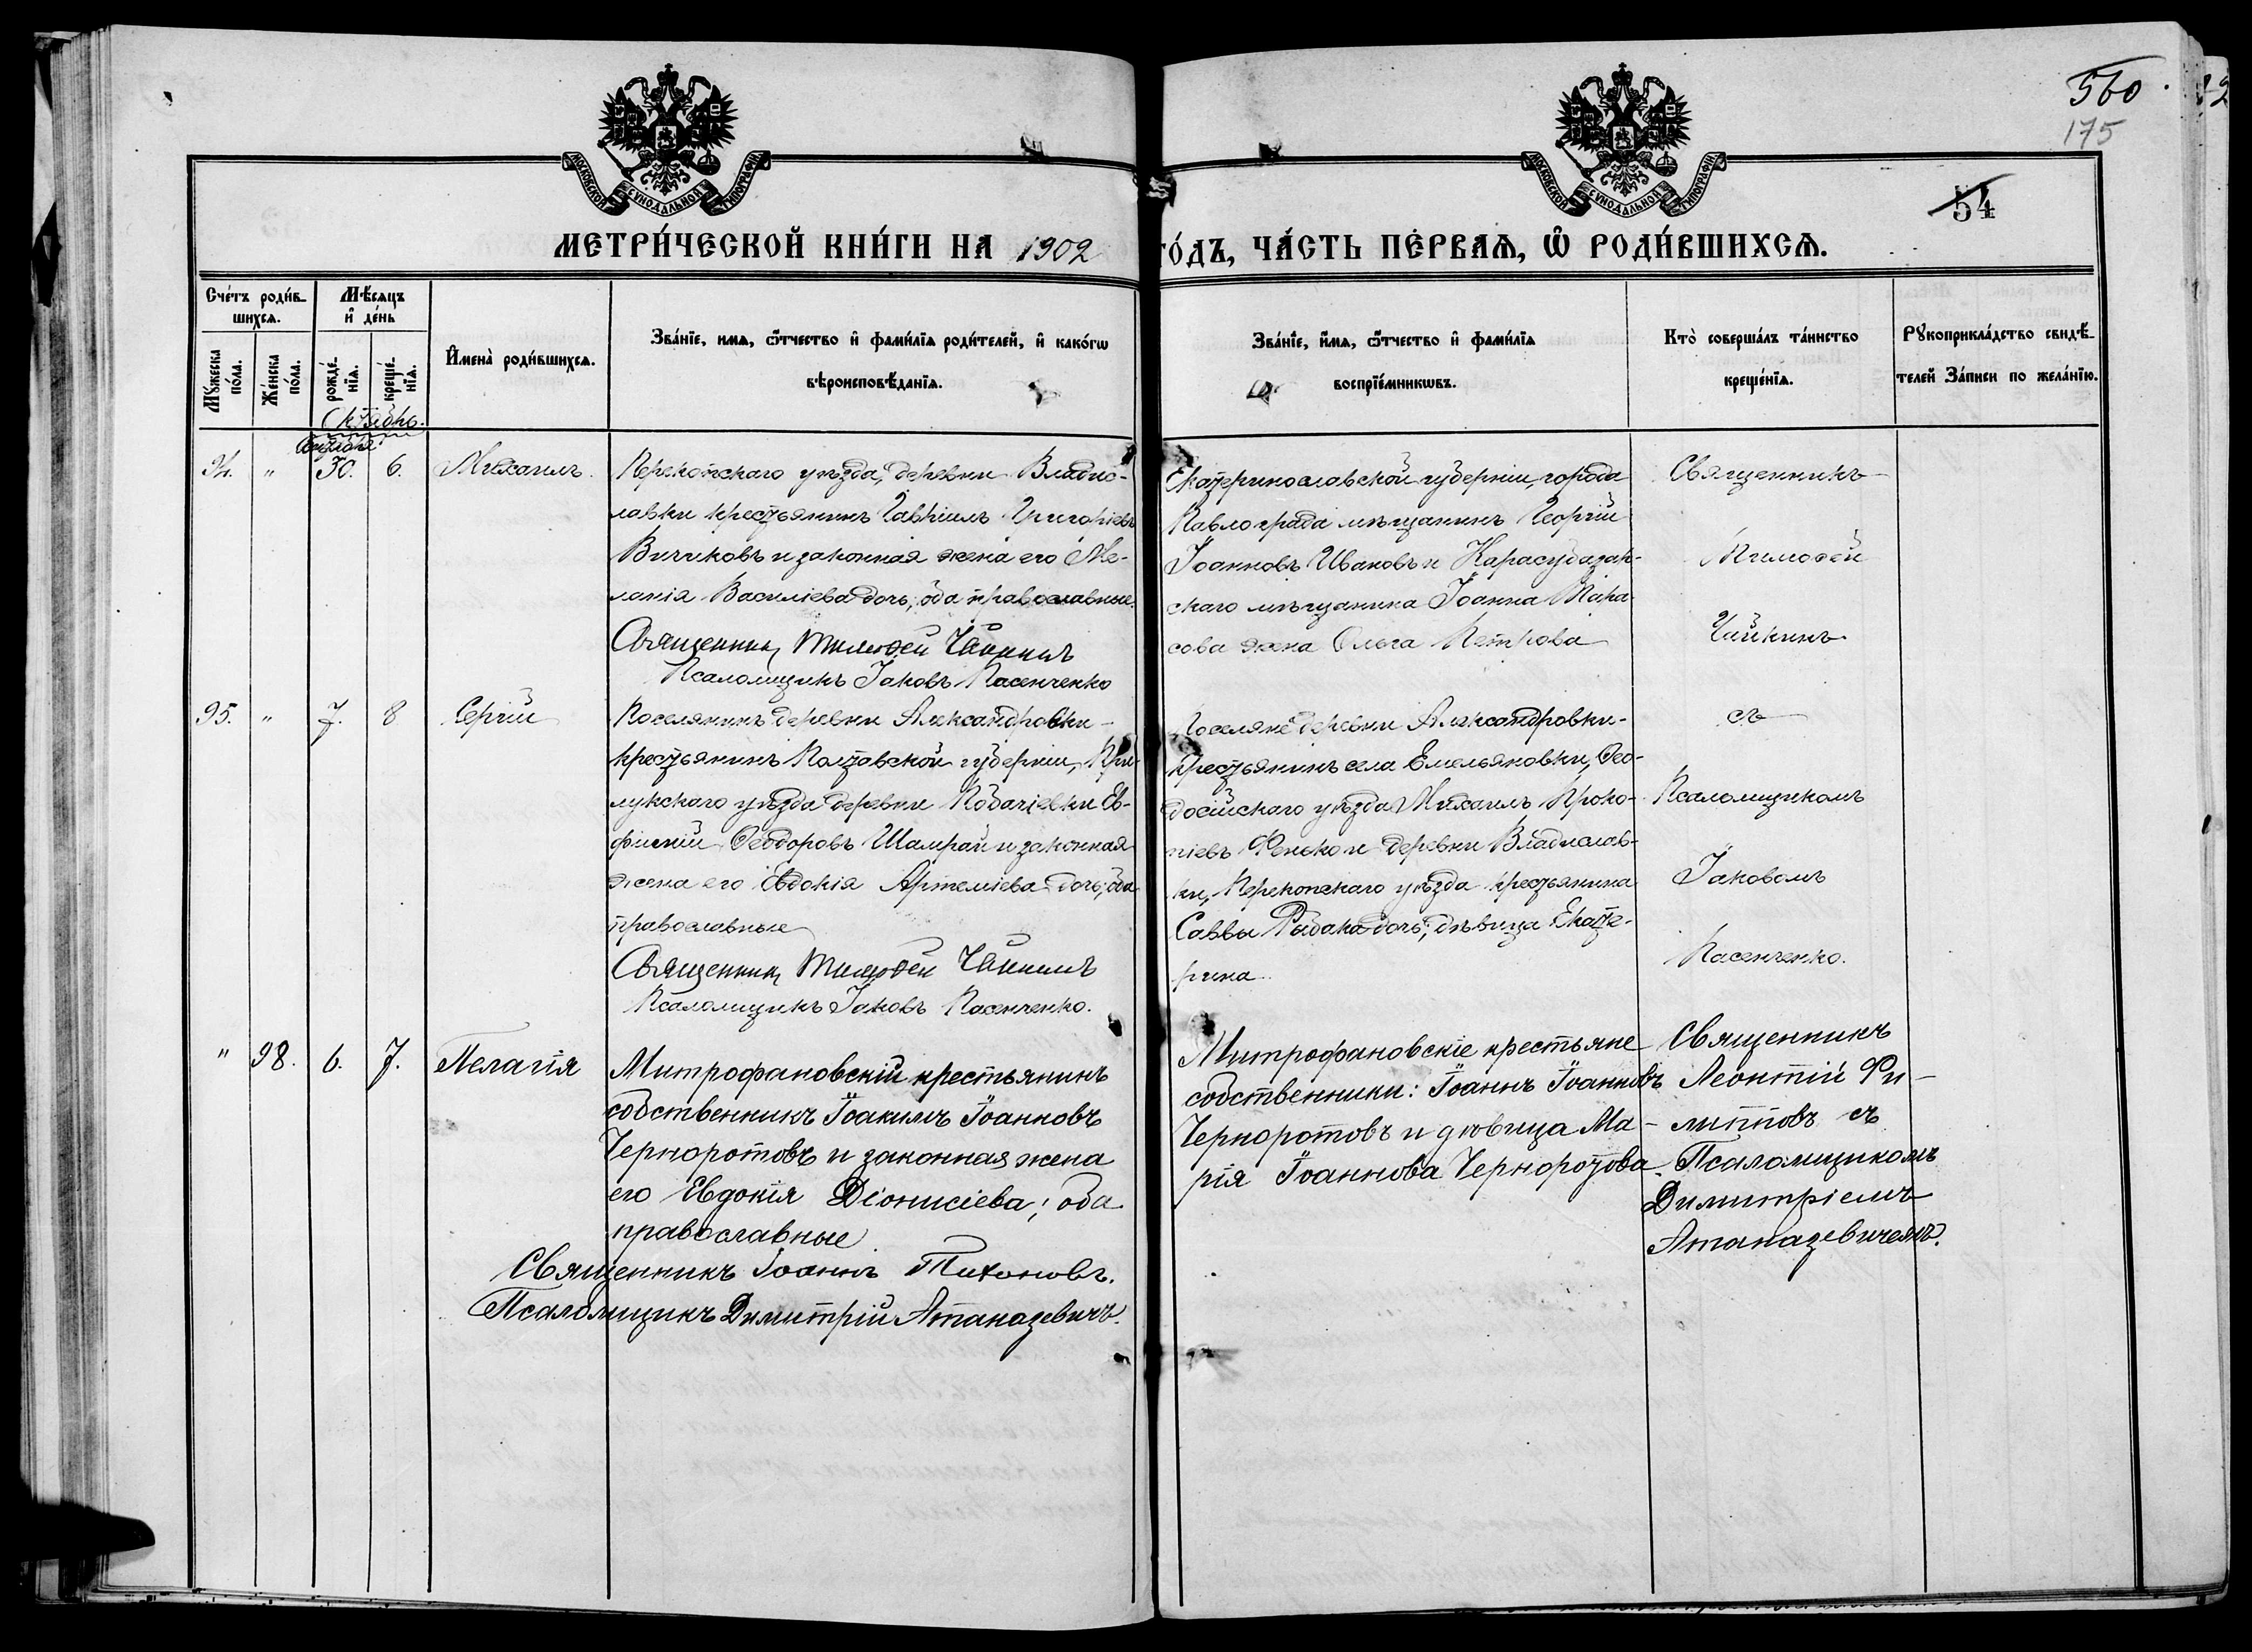 560.
175
54
МОСКОВСКОЙ СУНОДАЛЬНОЙ ТИПОГРАФІИ
МОСКОВСКОЙ СУНОДАЛЬНОЙ ТИПОГРАФІИ
МЕТРИ́ЧЕСКОЙ КНИ́ГИ НА 1902 ГО́ДЪ, ЧА́СТЬ ПЕ́РВАѦ, Ѡ РОДИ́ВШИХСѦ.
Сче́тъ роди́в-
шихсѧ.
Мꙋ́жеска по́ла.
Же́нска по́ла.
Мѣ́сѧцъ
и҆ де́нь
рожде́-
нїѧ.
креще́-
нїѧ.
И҆мена̀ роди́вшихсѧ.
Зва́нїе, имѧ, ѻ҆́тчество и҆ фами́лїѧ роди́телей, и҆ како́гѡ
вѣроисповѣ́данїѧ.
Зва́нїе, и҆́мѧ, ѻ҆́тчество и҆ фами́лїѧ
воспрїе́мникѡвъ.
Кто̀ соверша́лъ та́инство
креще́нїѧ.
Рꙋкоприкла́дство свидѣ́-
телей За́писи по жела́нїю.
Октябрь.
94. " 30. 6. Михаилъ.
Перекопскаго уѣзда, деревни Владис-
лавки крестьянинъ Гавріилъ Григоріевъ
Вичиковъ и законная жена его Ме-
ланія Василіева дочь; оба православные.
Священникъ Тимоѳей Чайкинъ
Псаломщикъ Іаковъ Пасенченко
Екатеринославской губерніи, города
Павлограда мѣщанинъ Георгій
Іоанновъ Ивановъ и Карасубазар-
скаго мѣщанина Іоанна Тара-
сова жена Ольга Петрова
Священникъ
Тимоѳей
Чайкинъ
95. " 7. 8 Сергій
Поселянинъ деревни Александровки-
крестьянинъ Полтавской губерніи, При-
лукскаго уѣзда деревни Подачіевки Ев-
фимій Ѳеодоровъ Шамрай и законная
жена его Евдокія Артеміева дочь; оба
православные
Священникъ Тимоѳей Чайкинъ
Псаломщикъ Іаковъ Пасенченко.
Поселяне деревни Александровки-
крестьянинъ села Емельяновки, Ѳео-
досійскаго уѣзда Михаилъ Проко-
піевъ Фенько и деревни Владислав-
ки, Перекопскаго уѣзда крестьянина
Саввы Рыбака дочь, дѣвица Екате-
рина
съ
Псаломщикомъ
Іаковомъ
Пасенченко.
" 98. 6. 7. Пелагія
Митрофановскій крестьянинъ
собственникъ Іоакимъ Іоанновъ
Черноротовъ и законная жена
его Евдокія Діонисіева; оба
православные
Священникъ Іоаннъ Тихоновъ.
Псаломщикъ Димитрій Атаназевичъ.
Митрофановскіе крестьяне
собственники: Іоаннъ Іоанновъ
Черноротовъ и дѣвица Ма-
рія Іоаннова Черноротова.
Священникъ
Леонтій Фи-
липповъ съ
Псаломщикомъ
Димитріемъ
Атаназевичемъ.